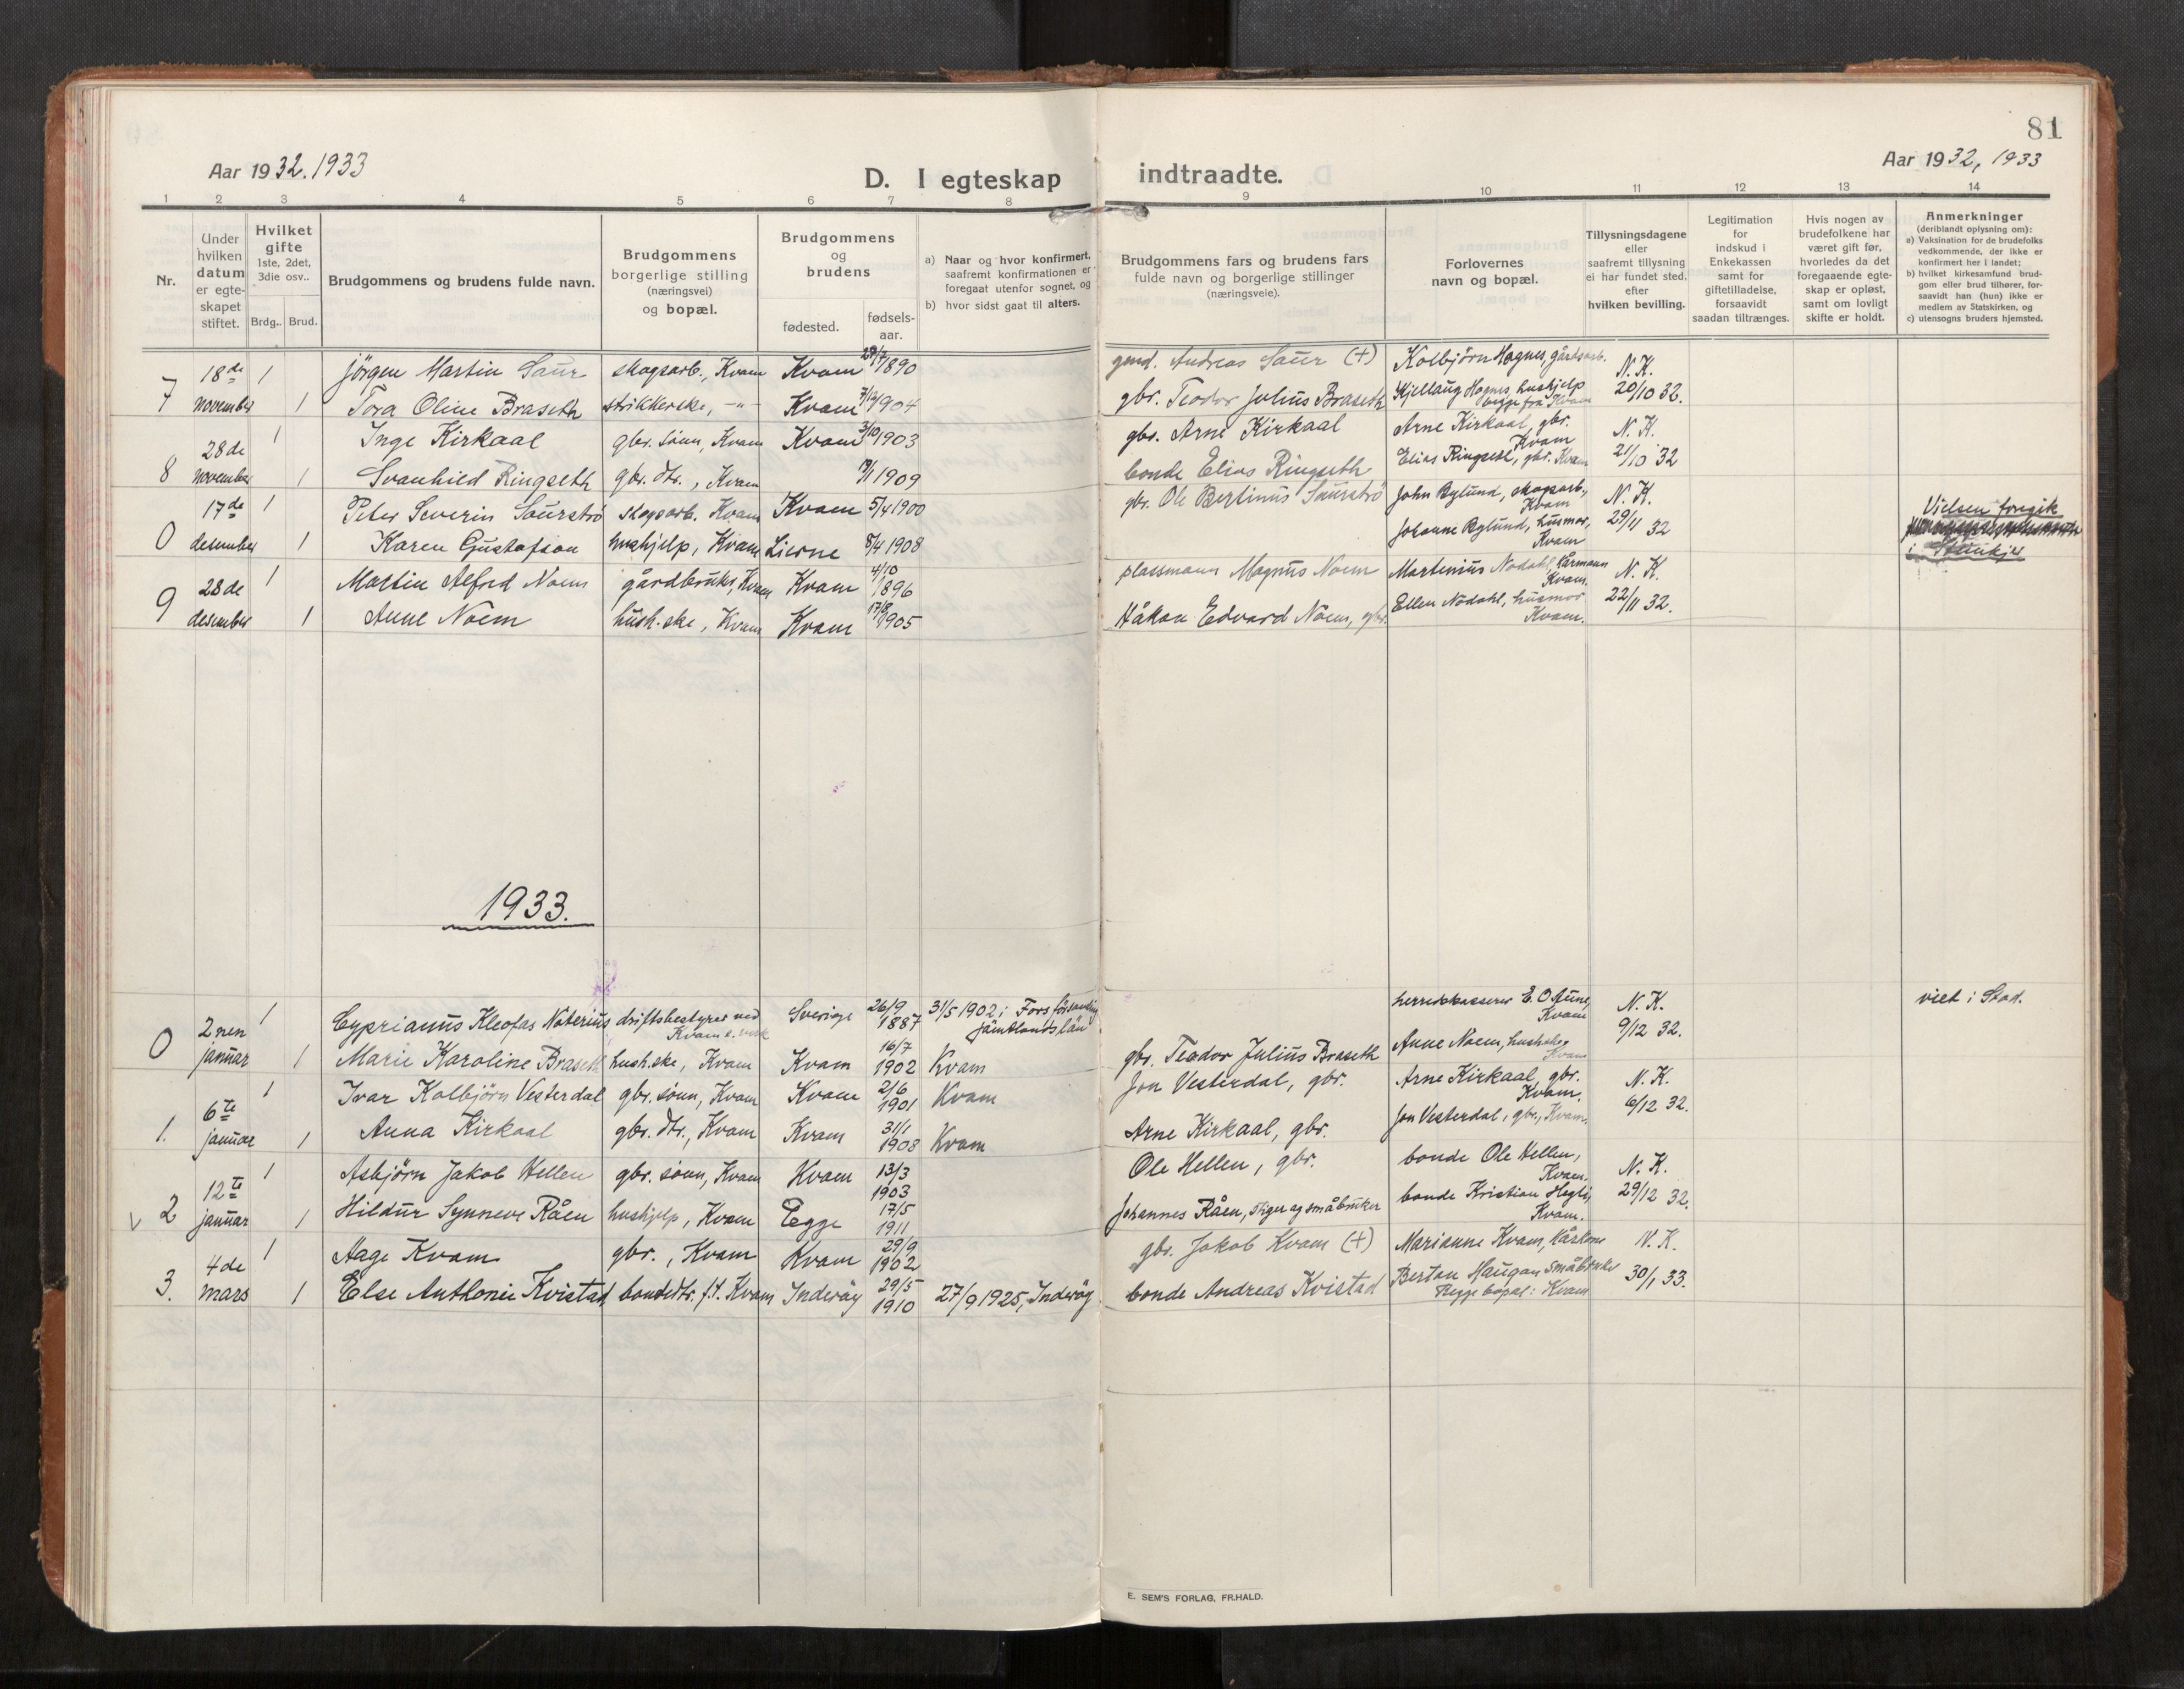 81
Aar 1932. 1933
D. I egteskap indtraadte.
Aar 1932, 1933
1 2 3 4 5 6 7 8 9 10 11 12 13 14
Nr.
Under
hvilken
datum
er egte-
skapet
stiftet.
Hvilket
gifte
1ste, 2det,
3die osv..
Brdg.. Brud.
Brudgommens og brudens fulde navn.
Brudgommens
borgerlige stilling
(næringsvei)
og bopæl.
Brudgommens
og
brudens
fødested.
fødsels-
aar.
a) Naar og hvor konfirmert,
saafremt konfirmationen er
foregaat utenfor sognet, og
b) hvor sidst gaat til alters.
Brudgommens fars og brudens fars
fulde navn og borgerlige stillinger
(næringsveie).
Forlovernes
navn og bopæl.
Tillysningsdagene
eller
saafremt tillysning
ei har fundet sted,
efter
hvilken bevilling.
Legitimation
for
indskud i
Enkekassen
samt for
giftetilladelse,
forsaavidt
saadan tiltrænges.
Hvis nogen av
brudefolkene har
været gift før,
hvorledes da det
foregaaende egte-
skap er opløst,
samt om lovligt
skifte er holdt.
Anmerkninger
(deriblandt oplysning om):
a) Vaksination for de brudefolks
vedkommende, der ikke er
konfirmert her i landet;
b) hvilket kirkesamfund brud-
gom eller brud tilhører, for-
saavidt han (hun) ikke er
medlem av Statskirken, og
c) utensogns bruders hjemsted.
7 18de 1 Jörgen Martin Saur skogsarb., Kvam Kvam 1890 Andreas Saur (+) Kolbjörn Hognes, gårdsarb. N. K.
november 1 Tora Oline Braseth strikkerske, -"- Kvam 7/12 1904 gbr. Teodor Julius Braseth Kjellaug Hognes, hushjelp 20/10 32.
begge fra Kvam
8 28de 1 Inge Kirkaal gbr. sönn, Kvam Kvam 3/10 1903 gbr. Arne Kirkaal Arne Kirkaal, gbr. Kvam N. K.
november 1 Svanhild Ringseth gbr. dtr., Kvam 1909 bonde Elias Ringseth Elias Ringseth, gbr. Kvam 21/10 32
0 17de 1 Peter Severin Saurströ skogsarb. Kvam Kvam 5/4 1900 gbr. Ole Bertinus Saurströ John Bylund, skogsarb., Kvam N. K. Vielsen foregik
desember 1 Karen Gustafson hushjelp, Kvam Lierne 8/4 1908 Johanne Bylund, husmor, Kvam 29/11 32 i Steinkjer
9 28de 1 Martin Alfred Noem gårdbruker, Kvam Kvam 4/10 1896 plassmann Magnus Noem Martinius Nodahl, Kvam. N. K.
desember 1 Anne Noem hush.ske, Kvam Kvam 17/8 1905 Håkon Edvard Noem, gbr. Ellen Nodahl, husmor Kvam. 22/11 32.
1933.
0 2nen 1 Cyprianus Kleofas Noterius driftsbestyrer ved Kvam e. verk Sverige 26/9 1887 31/5 1902 i Fors församling Jämtlands län herredskasserer E. O. Aune, Kvam N. K. viet i Stod.
januar 1 Marie Karoline Braseth hush.ske, Kvam Kvam 16/7 1902 Kvam gbr. Teodor Julius Braseth Anne Noem, hush.ske, Kvam 9/12 32.
1. 6te 1 Ivar Kolbjörn Vesterdal gbr. sönn, Kvam Kvam 2/6 1901 Kvam Jon Vesterdal, gbr. Arne Kirkaal, gbr. Kvam. N. K.
januar 1 Anna Kirkaal gbr. dtr., Kvam Kvam 31/1 1908 Kvam Arne Kirkaal, gbr. Jon Vesterdal, gbr., Kvam. 6/12 32.
2 12te 1 Asbjörn Jakob Hellen gbr. sönn, Kvam Kvam 13/3 1903 Ole Hellen, gbr. bonde Ole Hellen, Kvam. N. K.
januar 1 Hildur Synneve Råen hushjelp, Kvam Egge 17/5 1911 Johannes Råen, stiger og småbruker bonde Kristian Hegli, Kvam. 29/12 32.
3. 4de 1 Aage Kvam gbr., Kvam Kvam 29/9 1902 gbr. Jakob Kvam (+) Marianne Kvam, kårkone N. K.
mars 1 Else Anthonie Kvistad, bondedtr. f.t. Kvam Inderöy 29/5 1910 27/9 1925, Inderöy bonde Andreas Kvistad Berton Haugan småbruker 30/1 33.
Begge bopæl: Kvam
E. SEM'S FORLAG, FR.HALD.